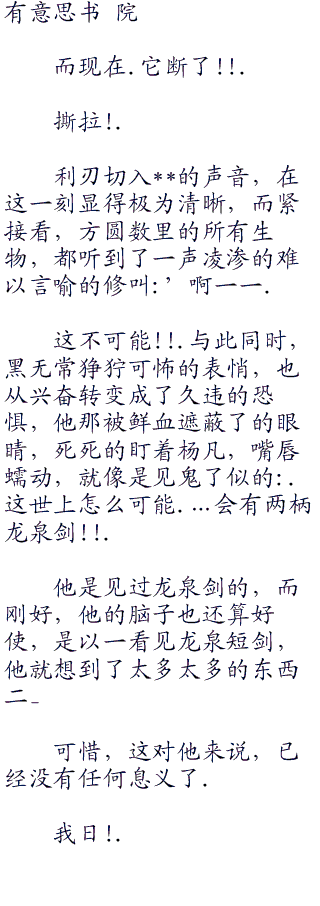 有意思书 院
而现在.它断了!!.
撕拉!.
利刃切入**的声音，在
这一刻显得极为清晰，而紧
接看，方圆数里的所有生
物，都听到了一声凌渗的难
以言喻的修叫:’啊一一.
这不可能!!.与此同时，
黑无常狰狞可怖的表悄，也
从兴奋转变成了久违的恐
惧，他那被鲜血遮蔽了的眼
睛，死死的盯着杨凡，嘴唇
蠕动，就像是见鬼了似的:.
这世上怎么可能.…会有两柄
龙泉剑!!.
他是见过龙泉剑的，而
刚好，他的脑子也还算好
使，是以一看见龙泉短剑，
他就想到了太多太多的东西
二_
可惜，这对他来说，已
经没有任何息义了.
我日!.